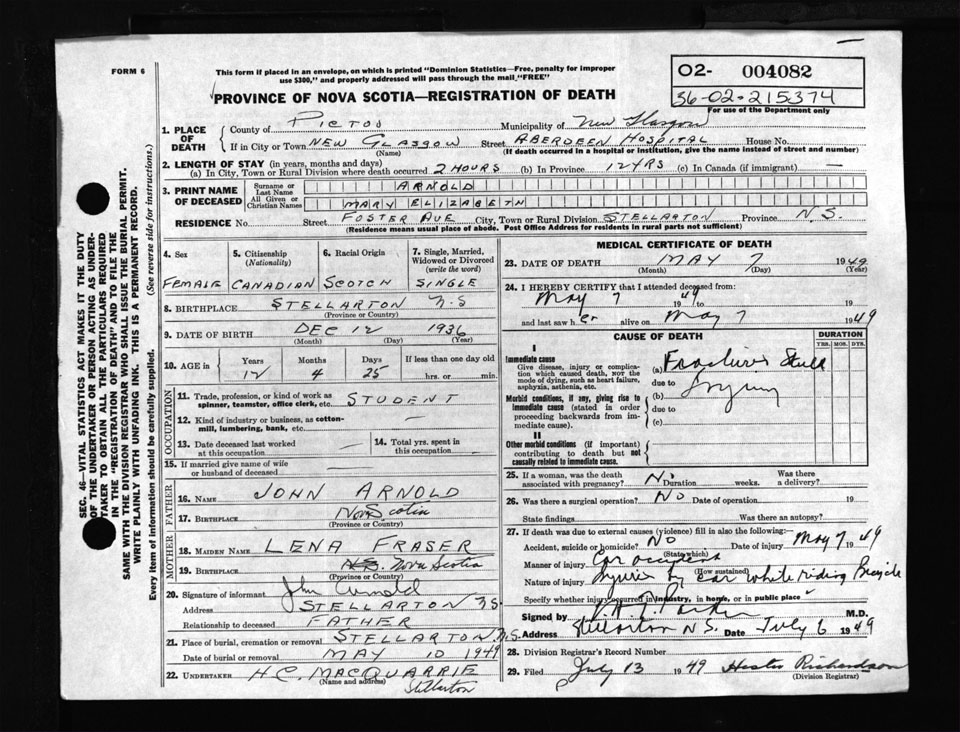 FORM 6
This form if placed in an envelope, on which is printed "Dominion Statistics—Free, penalty for improper
use $300," and properly addressed will pass through the mail "FREE"
02- 004082
36-02-215374
For use of the Department only
PROVINCE OF NOVA SCOTIA—REGISTRATION OF DEATH
1. PLACE OF DEATH
County of Pictou Municipality of New Glasgow
If in City or Town NEW GLASGOW Street ABERDEEN HOSPITAL House No.
(Name) (If death occurred in a hospital or institution, give the name instead of street and number)
2. LENGTH OF STAY (in years, months and days)
(a) In City, Town or Rural Division where death occurred 2 HOURS (b) In Province 12 YRS (c) In Canada (if immigrant) —
3. PRINT NAME OF DECEASED
Surname or Last Name ARNOLD
All Given or Christian Names MARY ELIZABETH
RESIDENCE No. Street FOSTER AVE City, Town or Rural Division STELLARTON Province N.S.
(Residence means usual place of abode. Post Office Address for residents in rural parts not sufficient)
4. Sex
FEMALE
5. Citizenship
(Nationality)
CANADIAN
6. Racial Origin
SCOTCH
7. Single, Married,
Widowed or Divorced
(write the word)
SINGLE
8. BIRTHPLACE STELLARTON N.S
(Province or Country)
9. DATE OF BIRTH DEC 12 1936
(Month) (Day) (Year)
10. AGE in
Years Months Days If less than one day old
12 4 25 hrs. or min.
OCCUPATION
11. Trade, profession, or kind of work as
spinner, teamster, office clerk, etc. STUDENT
12. Kind of industry or business, as cotton-
mill, lumbering, bank, etc. —
13. Date deceased last worked
at this occupation —
14. Total yrs. spent in
this occupation —
15. If married give name of wife
or husband of deceased —
FATHER
16. NAME JOHN ARNOLD
17. BIRTHPLACE Nova Scotia
(Province or Country)
MOTHER
18. MAIDEN NAME LENA FRASER
19. BIRTHPLACE N.S. Nova Scotia
(Province or Country)
20. Signature of informant John Arnold
Address STELLARTON N.S.
Relationship to deceased FATHER
21. Place of burial, cremation or removal STELLARTON N.S.
Date of burial or removal MAY 10 1949
22. UNDERTAKER H.C. MACQUARRIE
(Name and address) Stellarton
MEDICAL CERTIFICATE OF DEATH
23. DATE OF DEATH MAY 7 1949
(Month) (Day) (Year)
24. I HEREBY CERTIFY that I attended deceased from:
May 7 1949 to 19
and last saw her alive on May 7 1949
CAUSE OF DEATH
DURATION
YRS. MOS. DYS.
I
Immediate cause
Give disease, injury or complica-
tion which caused death, NOT the
mode of dying, such as heart failure,
asphyxia, asthenia, etc.
(a) Fractured Skull
due to
Morbid conditions, if any, giving rise to
immediate cause (stated in order
proceeding backwards from im-
mediate cause).
(b) Injury
due to
(c)
II
Other morbid conditions (if important)
contributing to death but not
causally related to immediate cause.
25. If a woman, was the death
associated with pregnancy? No Duration weeks. Was there
a delivery?
26. Was there a surgical operation? No Date of operation 19
State findings Was there an autopsy?
27. If death was due to external causes (violence) fill in also the following:—
Accident, suicide or homicide? No Date of injury May 7 1949
(State which)
Manner of injury Car accident
(How sustained)
Nature of injury Injuries by car while riding Bicycle
Specify whether injury occurred in industry, in home, or in public place ✓
Signed by M.D.
Address Stellarton N.S. Date July 6 1949
28. Division Registrar's Record Number
29. Filed July 13 1949 Hester Richardson
(Division Registrar)
SEC. 46—VITAL STATISTICS ACT MAKES IT THE DUTY
OF THE UNDERTAKER OR PERSON ACTING AS UNDER-
TAKER TO OBTAIN ALL THE PARTICULARS REQUIRED
IN THE "REGISTRATION OF DEATH" AND TO FILE THE
SAME WITH THE DIVISION REGISTRAR WHO SHALL ISSUE THE BURIAL PERMIT.
WRITE PLAINLY WITH UNFADING INK. THIS IS A PERMANENT RECORD.
Every item of information should be carefully supplied. (See reverse side for instructions.)